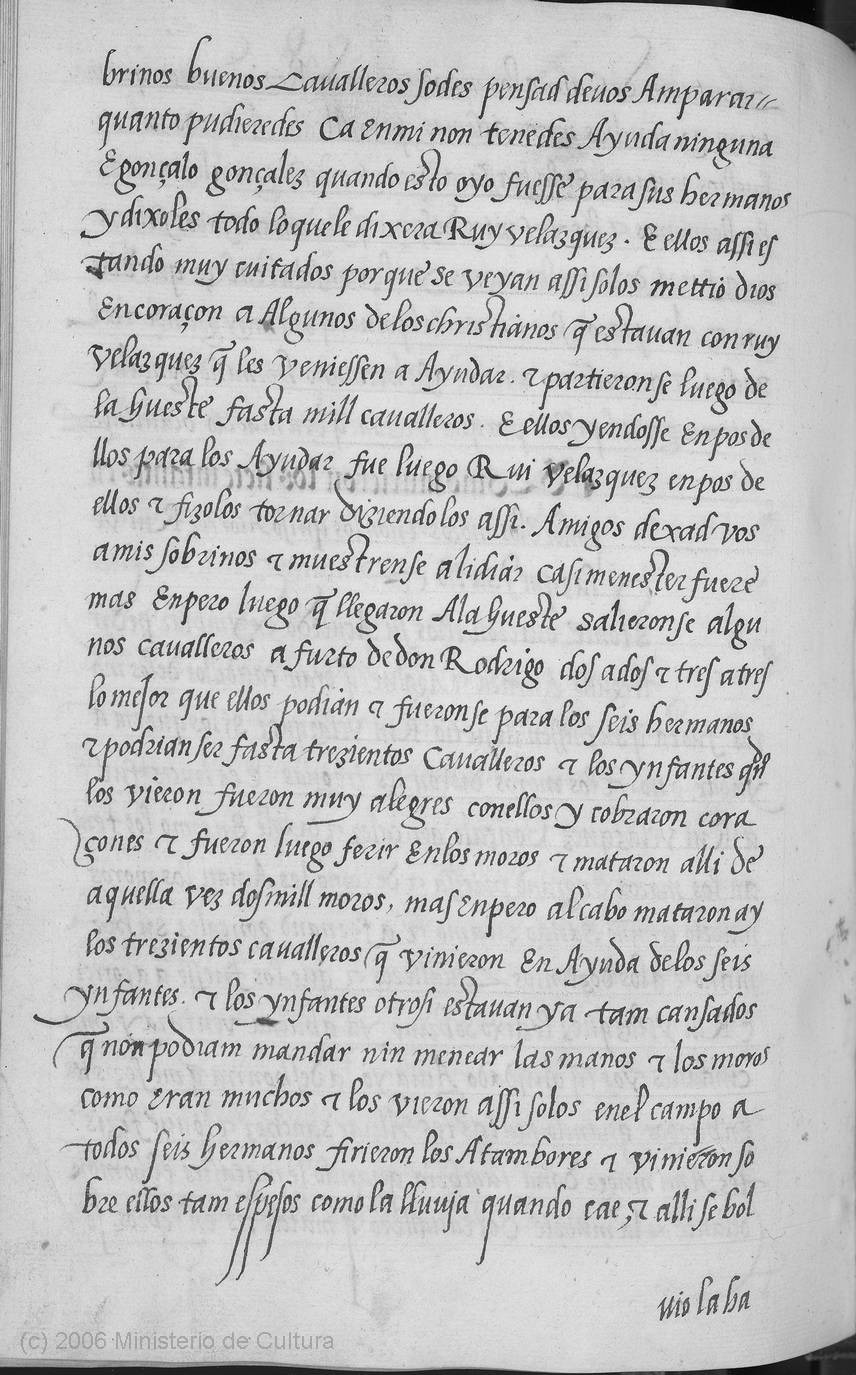 brinos buenos Cavalleros sodes pensad devos Amparar
quanto pudieredes Ca Enmi non tenedes Ayuda ninguna
E gonçalo gonçalez quando esto oyo fuesse para sus hermanos
y dixoles todo lo que le dixera Ruy velazquez. E ellos assi es
tando muy cuitados porque se veyan assi solos mettio dios
Encoraçon a Algunos delos christianos q̃ estavan con ruy
velazquez q̃ les veniessen a Ayudar. τ partieronse luego de
la hueste fasta mill cavalleros. E ellos yendosse Enpos de
llos para los Ayudar fue luego Rui velazquez enpos de
ellos τ fizolos tornar diziendolos assi. Amigos dexad vos
amis sobrinos τ muestrense alidiar casi menester fuere
mas Enpero luego q̃ llegaron Ala hueste salieronse algu
nos cavalleros a furto de don Rodrigo dos ados τ tres a tres
lo mejor que ellos podian τ fueronse para los seis hermanos
τ podrian ser fasta trezientos Cavalleros τ los ynfantes
los vieron fueron muy alegres conellos y cobraron cora
çones τ fueron luego ferir Enlos moros τ mataron alli de
aquella vez dosmill moros, mas Enpero alcabo mataron ay
los trezientos cavalleros q̃ vinieron En Ayuda delos seis
ynfantes. τ los ynfantes otrosi estavan ya tam cansados
q̃ non podiam mandar nin menear las manos τ los moros
como Eran muchos τ los vieron assi solos enel campo a
todos seis hermanos firieron los Atambores τ vinieron so
bre ellos tam espesos como la lluvja quando cae, τ alli se bol
vio la ba
(c) 2006 Ministerio de Cultura